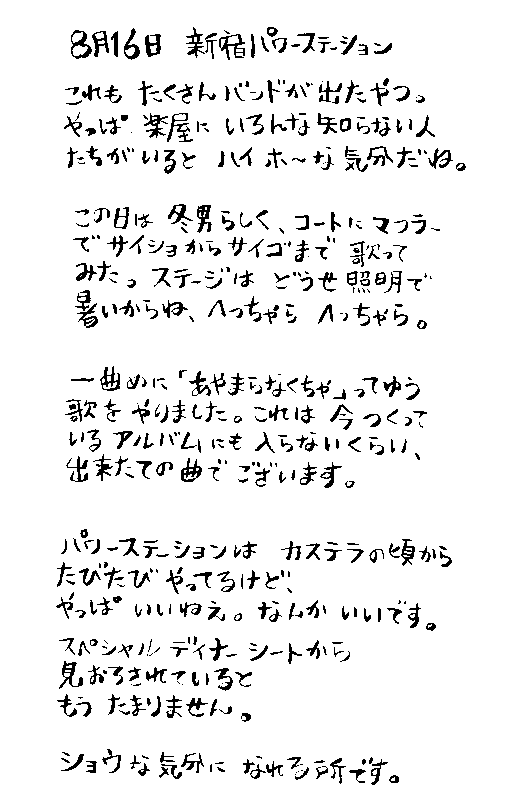 8月16日 新宿パワーステーション
これも たくさんバンドが出たやつ。
やっぱ 楽屋に いろんな知らない人
たちがいると ハイホ〜な気分だね。
この日は 冬男らしく、コートにマフラー
でサイショからサイゴまで 歌って
みた。ステージは どうせ照明で
暑いからね、へっちゃら へっちゃら。
一曲めに「あやまらなくちゃ」ってゆう
歌を やりました。これは 今つくって
いるアルバムにも 入らないくらい、
出来たての曲でございます。
パワーステーションは カステラの頃から
たびたび やってるけど、
やっぱ いいねえ。なんか いいです。
スペシャル ディナーシートから
見おろされていると
もう たまりません。
ショウな気分に なれる所です。